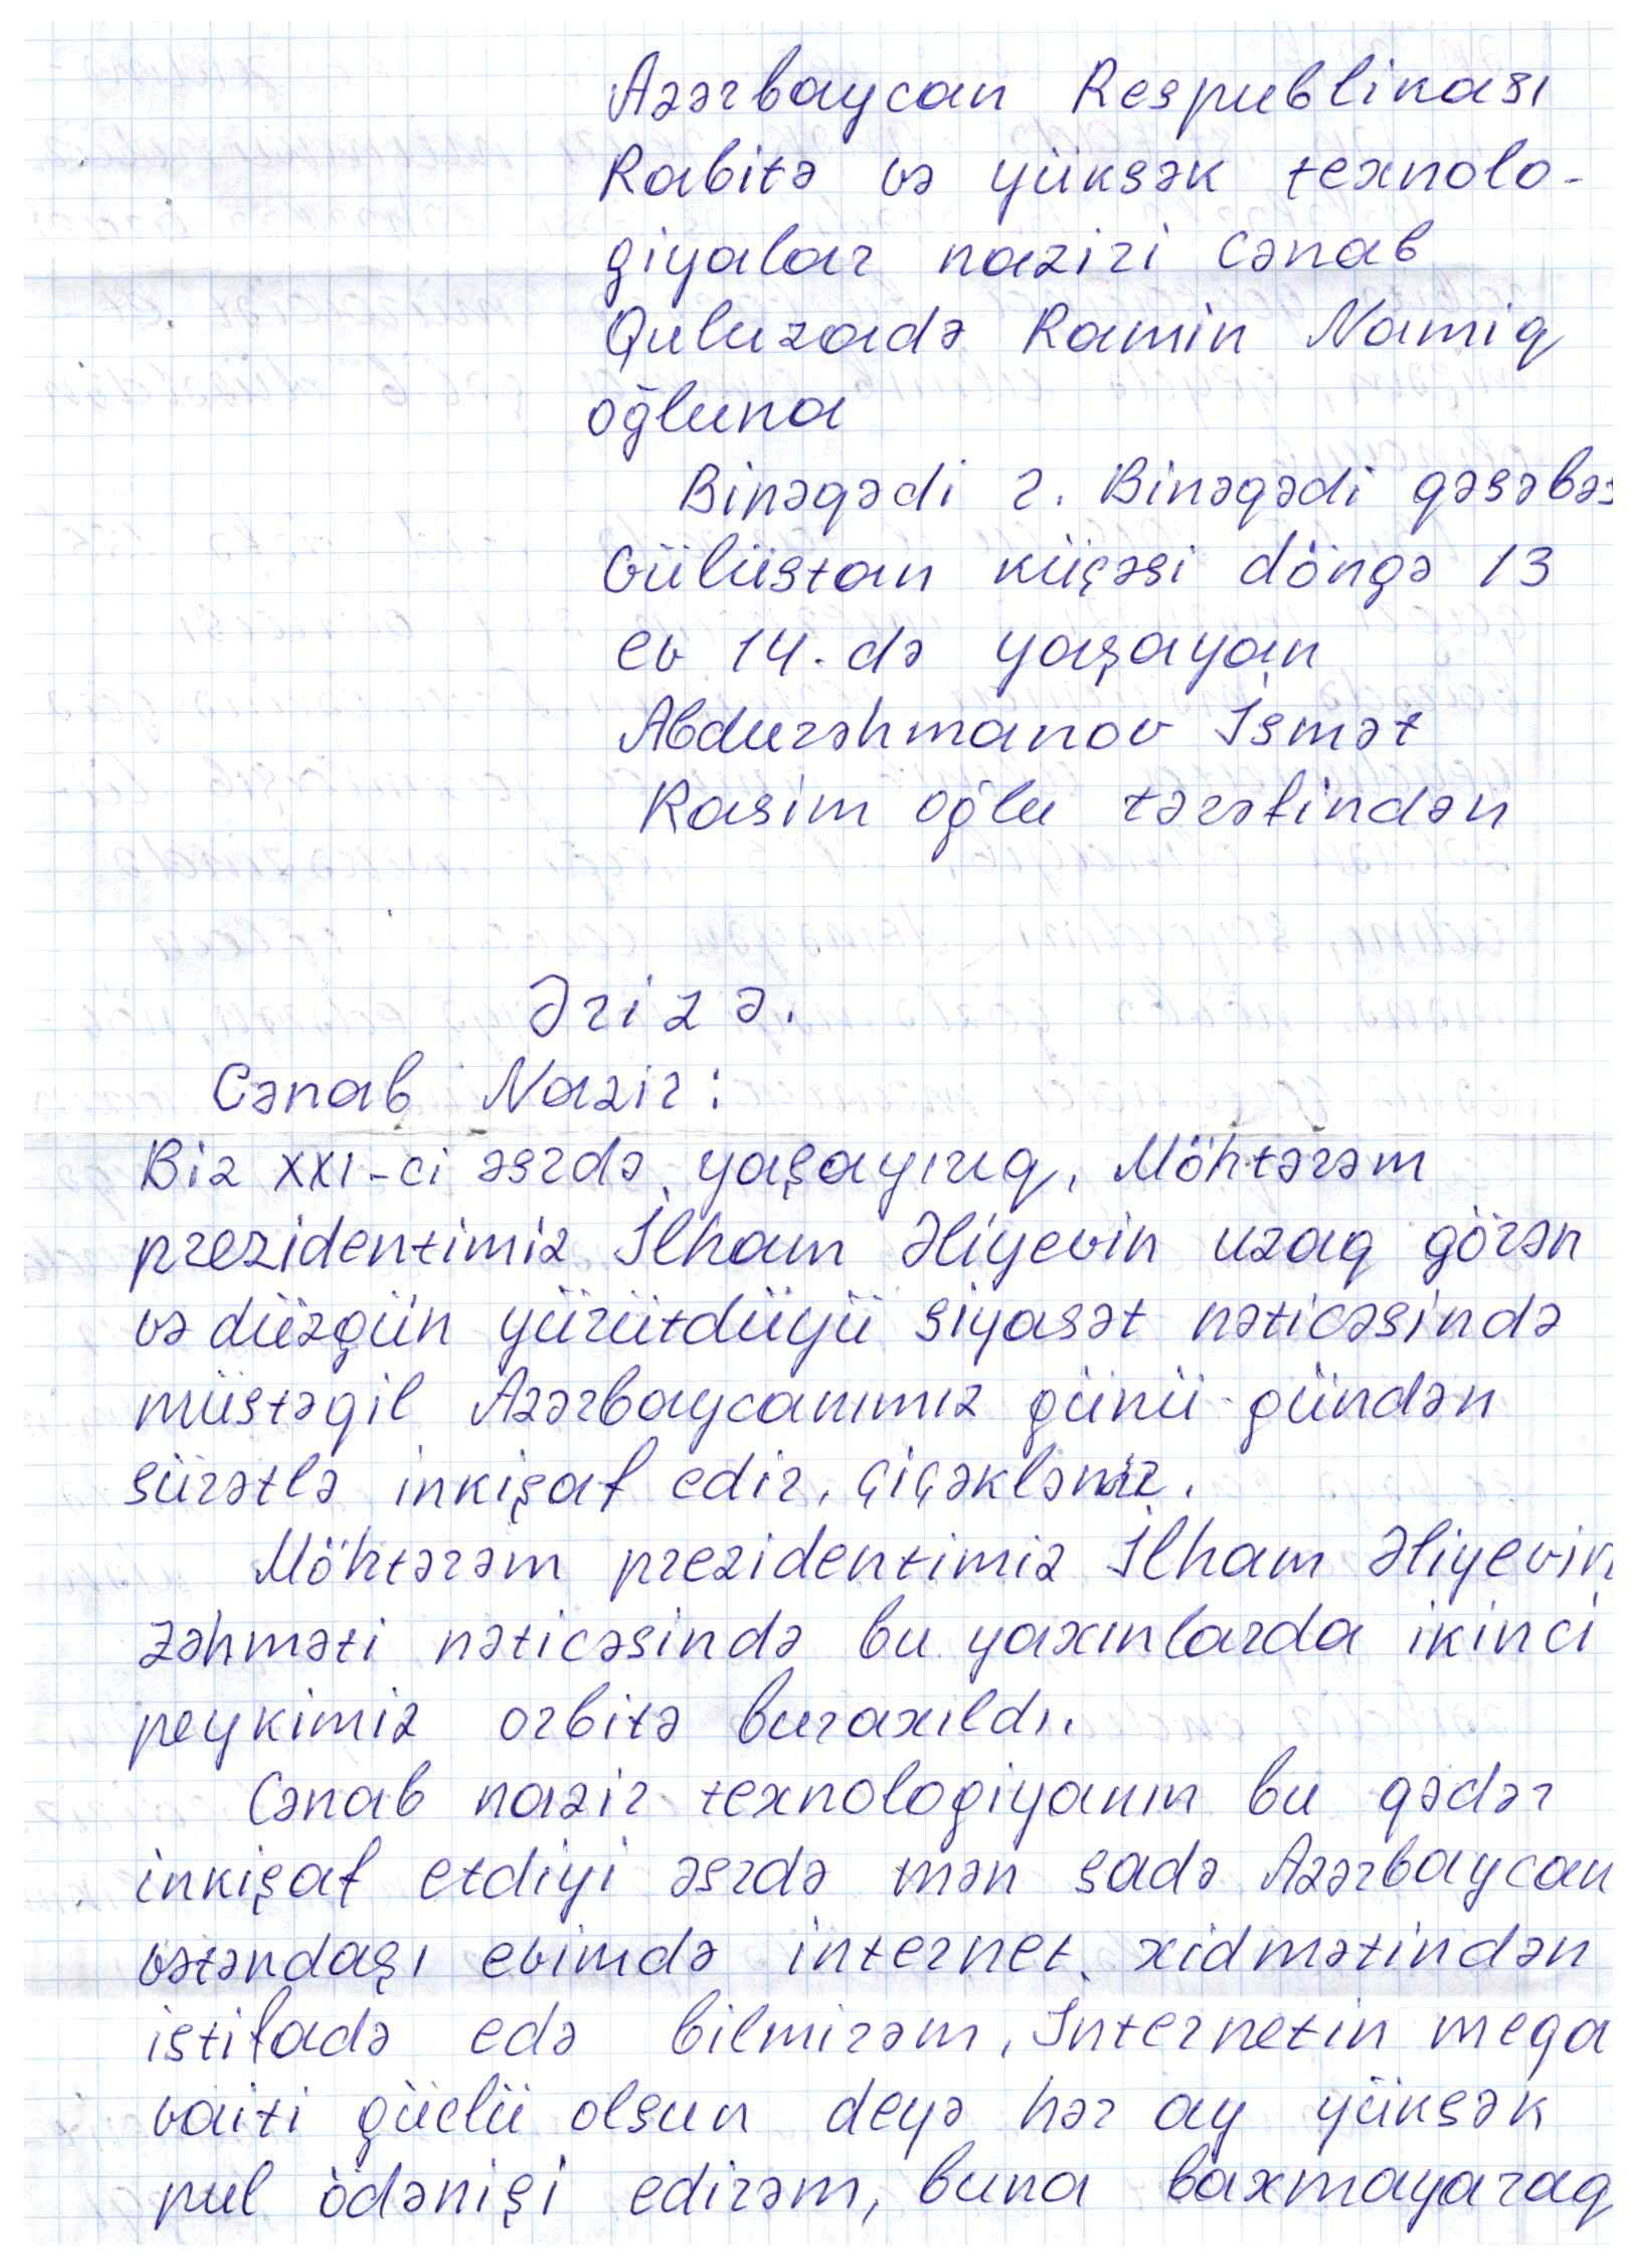 Azərbaycan Respublikası
Rabitə və yüksək texnolo-
giyalar naziri cənab
Quluzadə Ramin Namiq
oğluna
Binəqədi r. Binəqədi qəsəbəs
Gülüstan küçəsi döngə 13
ev 14. də yaşayan
Abdurəhmanov İsmət
Rasim oğlu tərəfindən
Ərizə.
Cənab Nazir:
Biz XXI-ci əsrdə yaşayırıq, Möhtərəm
prezidentimiz İlham Əliyevin uzaq görən
və düzgün yürütdüyü siyasət nəticəsində
müstəqil Azərbaycanımız günü-gündən
sürətlə inkişaf edir, çiçəklənir.
Möhtərəm prezidentimiz İlham Əliyevin
zəhməti nəticəsində bu yaxınlarda ikinci
peykimiz orbitə buraxıldı.
Cənab nazir texnologiyanın bu qədər
inkişaf etdiyi əsrdə mən sadə Azərbaycan
vətəndaşı evimdə internet xidmətindən
istifadə edə bilmirəm, İnternetin mega
vaiti güclü olsun deyə hər ay yüksək
pul ödənişi edirəm, buna baxmayaraq